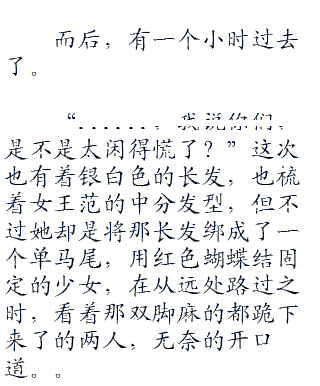 而后，有一个小时过去
了。
“......，我说你们，
是不是太闲得慌了？”这次
也有着银白色的长发，也梳
着女王范的中分发型，但不
过她却是将那长发绑成了一
个单马尾，用红色蝴蝶结固
定的少女，在从远处路过之
时，看着那双脚麻的都跪下
来了的两人，无奈的开口
道。。